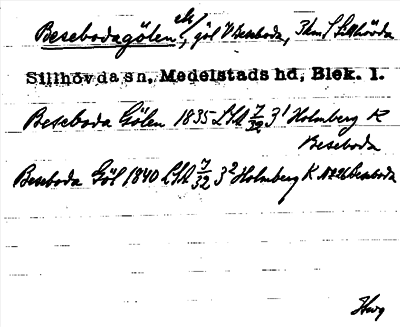 Besebodagölen, göl V Beseboda, 3 km S Sillhövda
Sillhövda sn, Medelstads hd, Blek. l.
Beseboda Gölen 1835 LSA 7/32 3¹ Holmberg K
Beseboda
Beseboda Göl 1840 LSA 7/32 3² Holmberg K Beseboda